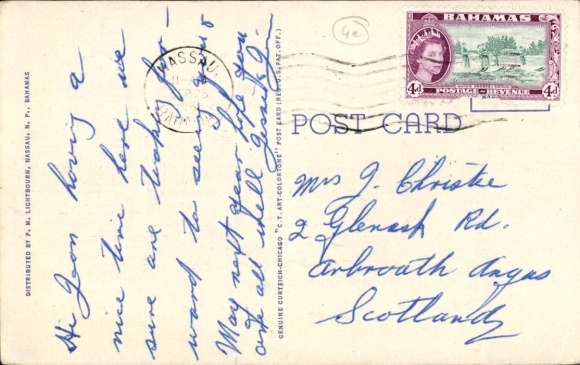 DISTRIBUTED BY P. M. LIGHTBOURN, NASSAU, N. P., BAHAMAS
Hi Jean having a
nice time here we
sure are looking for-
ward to see you
May next year hope you
are all well Jessie & J-
GENUINE CURTEICH-CHICAGO "C.T. ART-COLORTONE" POST CARD (REG. U.S. PAT. OFF.)
4e
NASSAU
BAHAMAS
4d POSTAGE & REVENUE 4d
POST CARD
Mrs J. Christie
2 Glenash Rd.
Arbroath Angus
Scotland